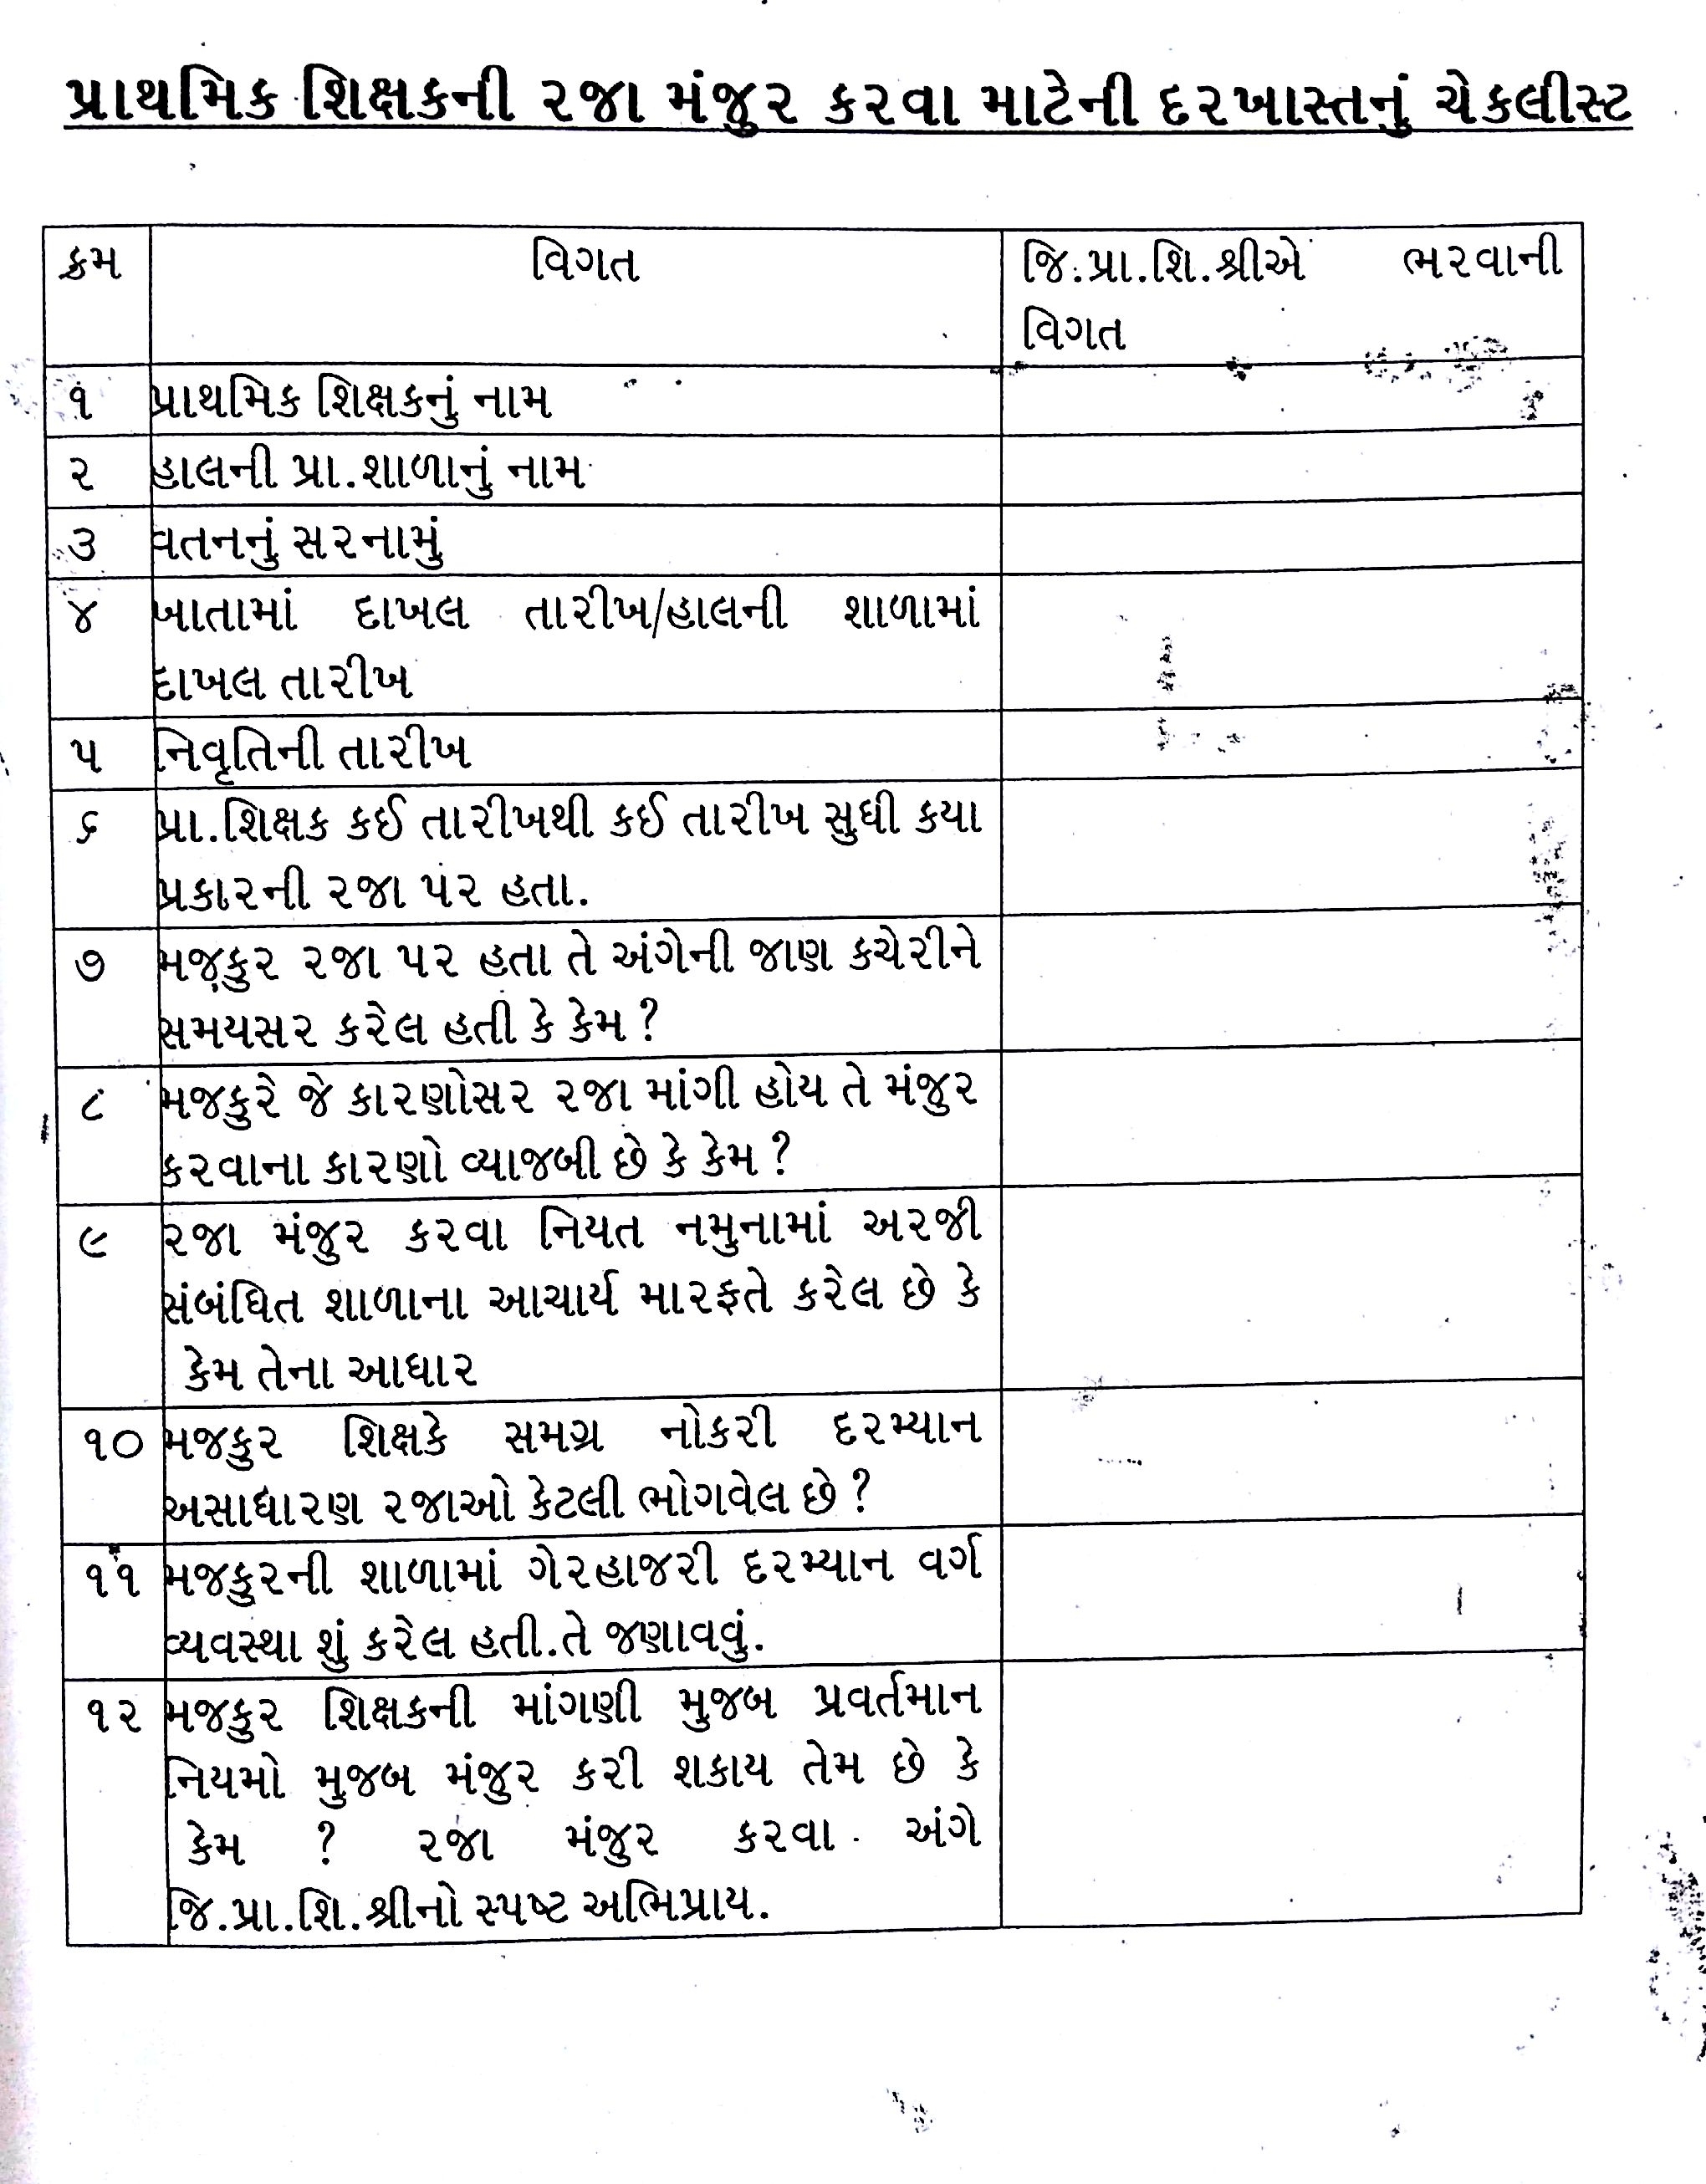 પ્રાથમિક શિક્ષકની રજા મંજુર કરવા માટેની દરખાસ્તનું ચેકલીસ્ટ
ક્રમ વિગત જિ.પ્રા.શિ.શ્રીએ ભરવાની
વિગત
૧ પ્રાથમિક શિક્ષકનું નામ
૨ હાલની પ્રા.શાળાનું નામ
૩ વતનનું સરનામું
૪ ખાતામાં દાખલ તારીખ/હાલની શાળામાં
દાખલ તારીખ
૫ નિવૃતિની તારીખ
૬ પ્રા.શિક્ષક કઈ તારીખથી કઈ તારીખ સુધી કયા
પ્રકારની રજા પર હતા.
૭ મજકુર રજા પર હતા તે અંગેની જાણ કચેરીને
સમયસર કરેલ હતી કે કેમ ?
૮ મજકુરે જે કારણોસર રજા માંગી હોય તે મંજુર
કરવાના કારણો વ્યાજબી છે કે કેમ ?
૯ રજા મંજુર કરવા નિયત નમુનામાં અરજી
સંબંધિત શાળાના આચાર્ય મારફતે કરેલ છે કે
કેમ તેના આધાર
૧૦ મજકુર શિક્ષકે સમગ્ર નોકરી દરમ્યાન
અસાધારણ રજાઓ કેટલી ભોગવેલ છે ?
૧૧ મજકુરની શાળામાં ગેરહાજરી દરમ્યાન વર્ગ
વ્યવસ્થા શું કરેલ હતી.તે જણાવવું.
૧૨ મજકુર શિક્ષકની માંગણી મુજબ પ્રવર્તમાન
નિયમો મુજબ મંજુર કરી શકાય તેમ છે કે
કેમ ? રજા મંજુર કરવા અંગે
જિ.પ્રા.શિ.શ્રીનો સ્પષ્ટ અભિપ્રાય.